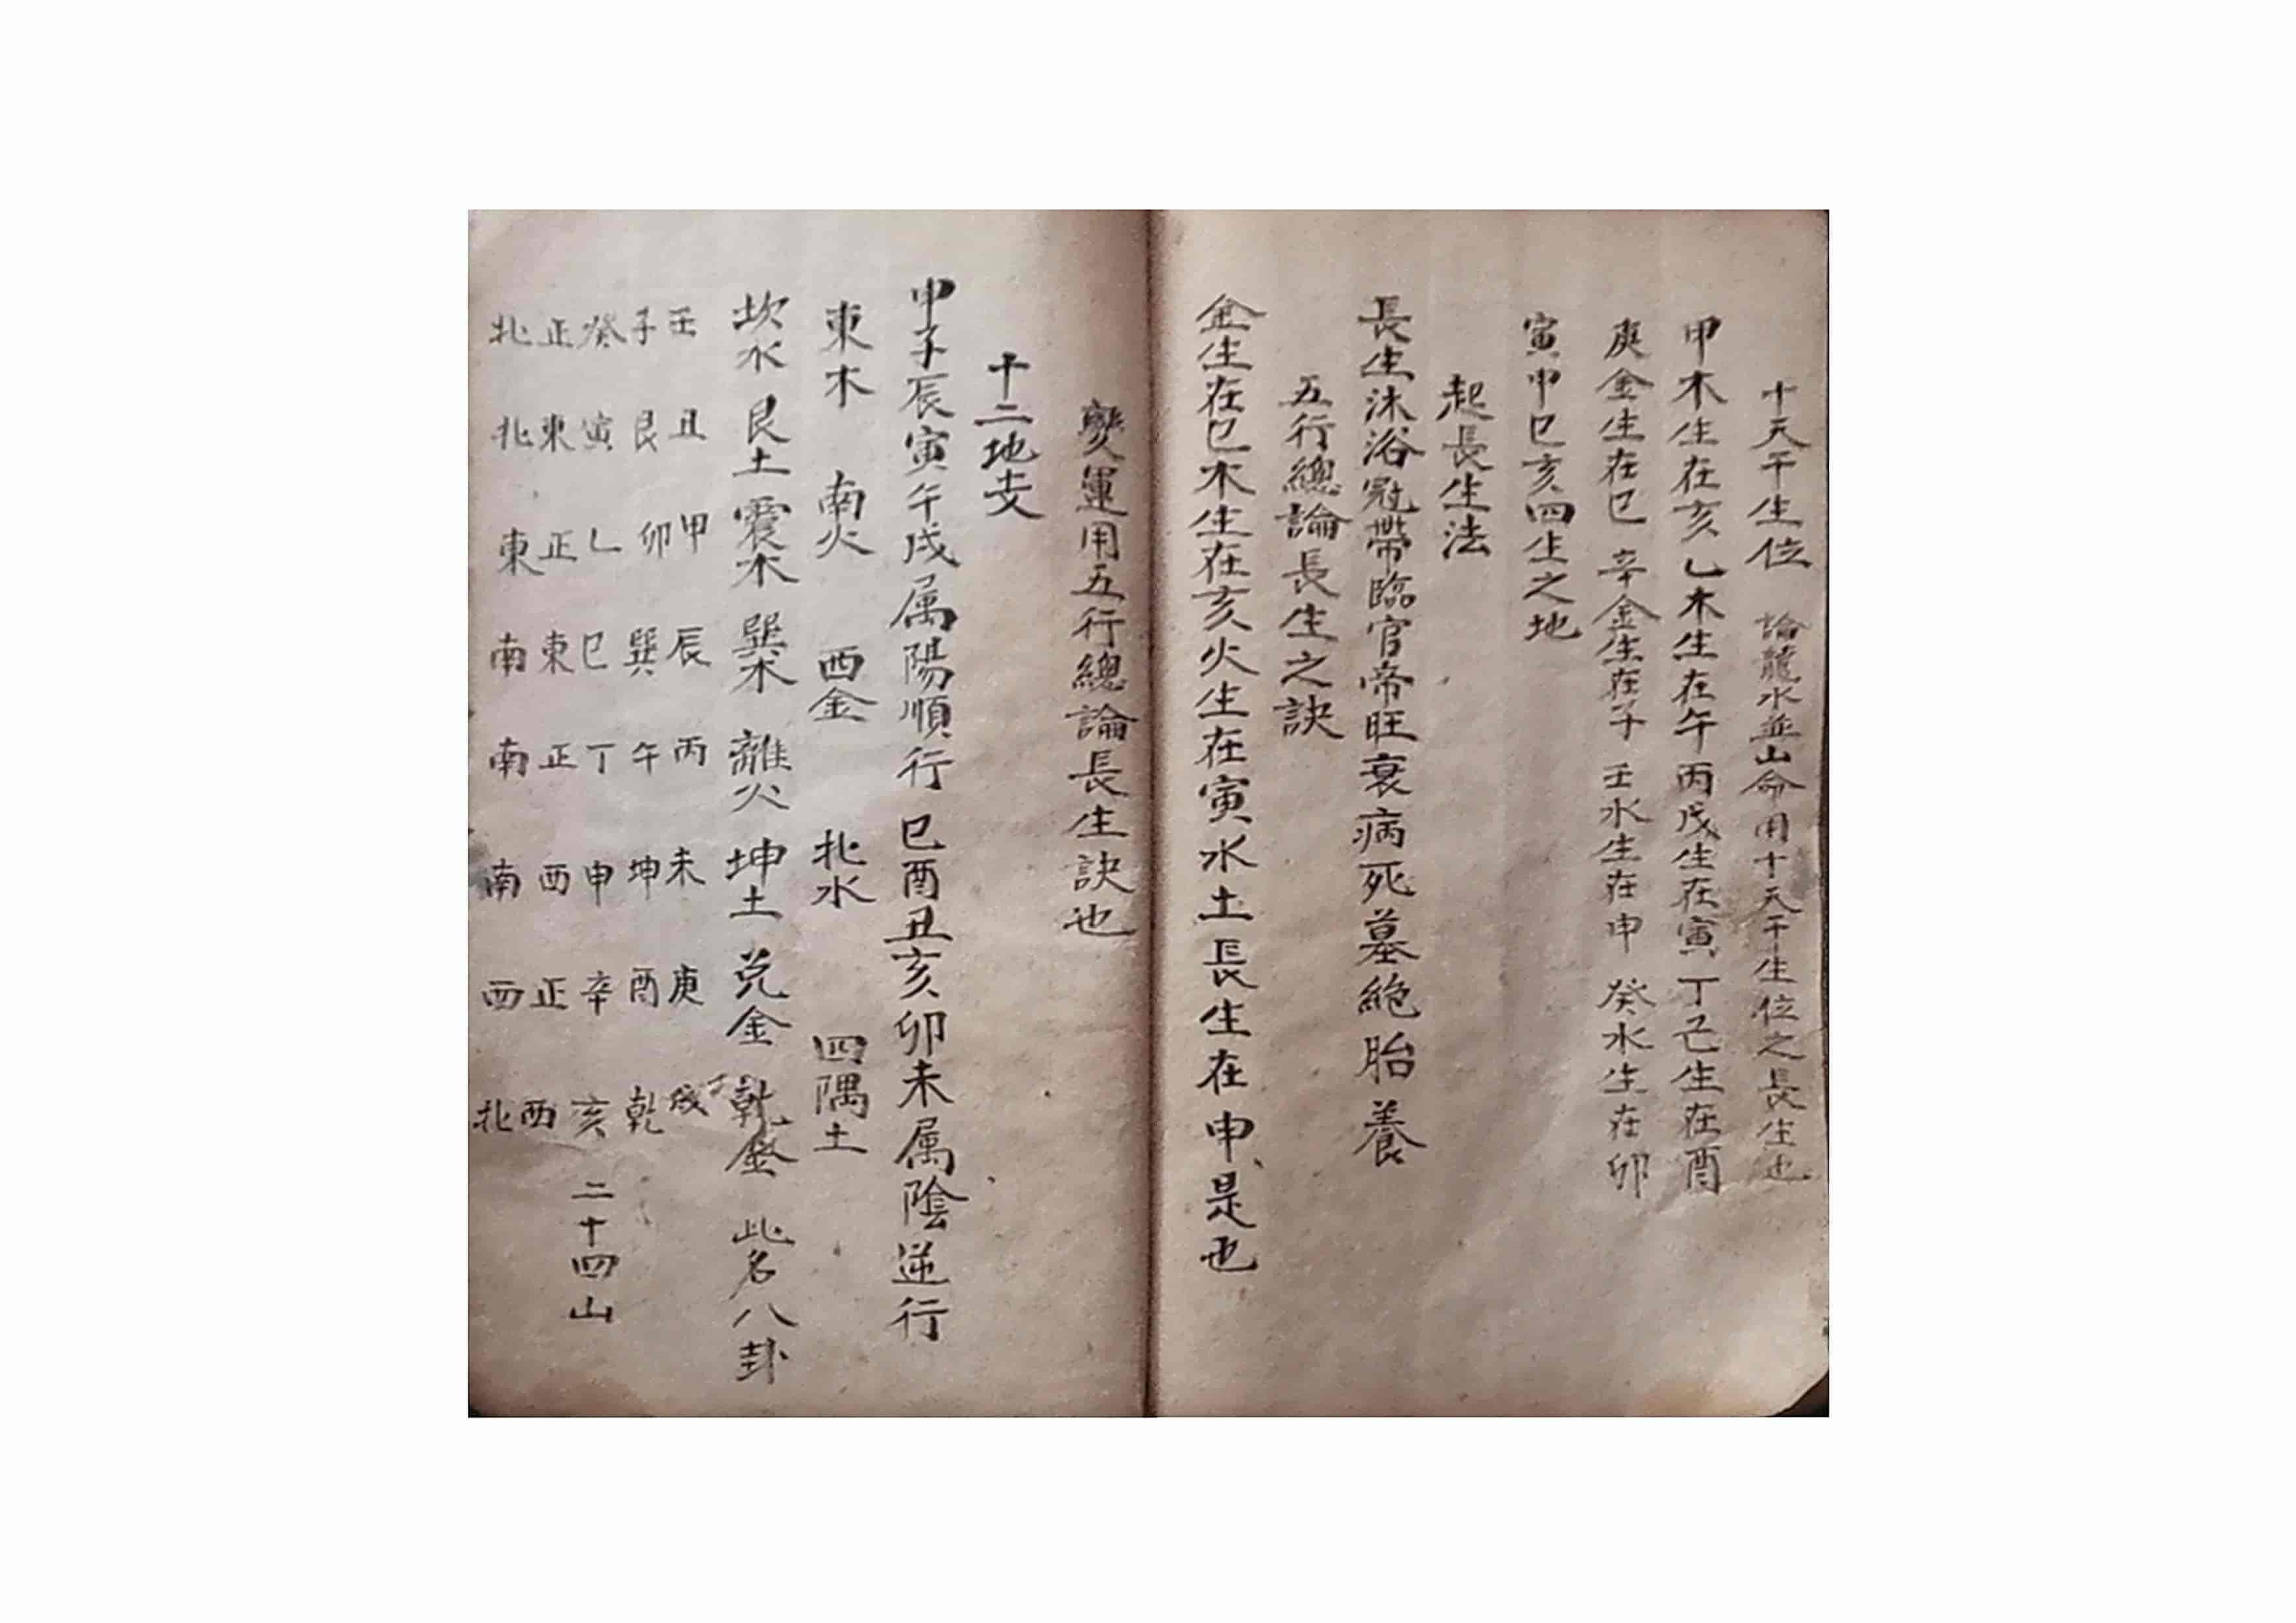 十天干生位　論龍水並山命用十天干生位之長生也
甲木生在亥乙木生在午丙戊生在寅丁己生在酉
庚金生在巳辛金生在子壬水生在申癸水生在卯
寅申巳亥四生之地
起長生法
長生沐浴冠帶臨官帝旺衰病死墓絶胎養
五行總論長生之訣
金生在巳木生在亥火生在寅水土長生在申是也
變運用五行總論長生訣也
十二地支
申子辰寅午戌属陽順行巳酉丑亥卯未属陰逆行
東木　南火　西金　北水　四隅土
坎水艮土震木巽木離火坤土兌金乾金　此名八卦
壬子癸正北
丑艮寅東北
甲卯乙正東
辰巽巳東南
丙午丁正南
未坤申西南
庚酉辛正西
戌乾亥西北
二十四山